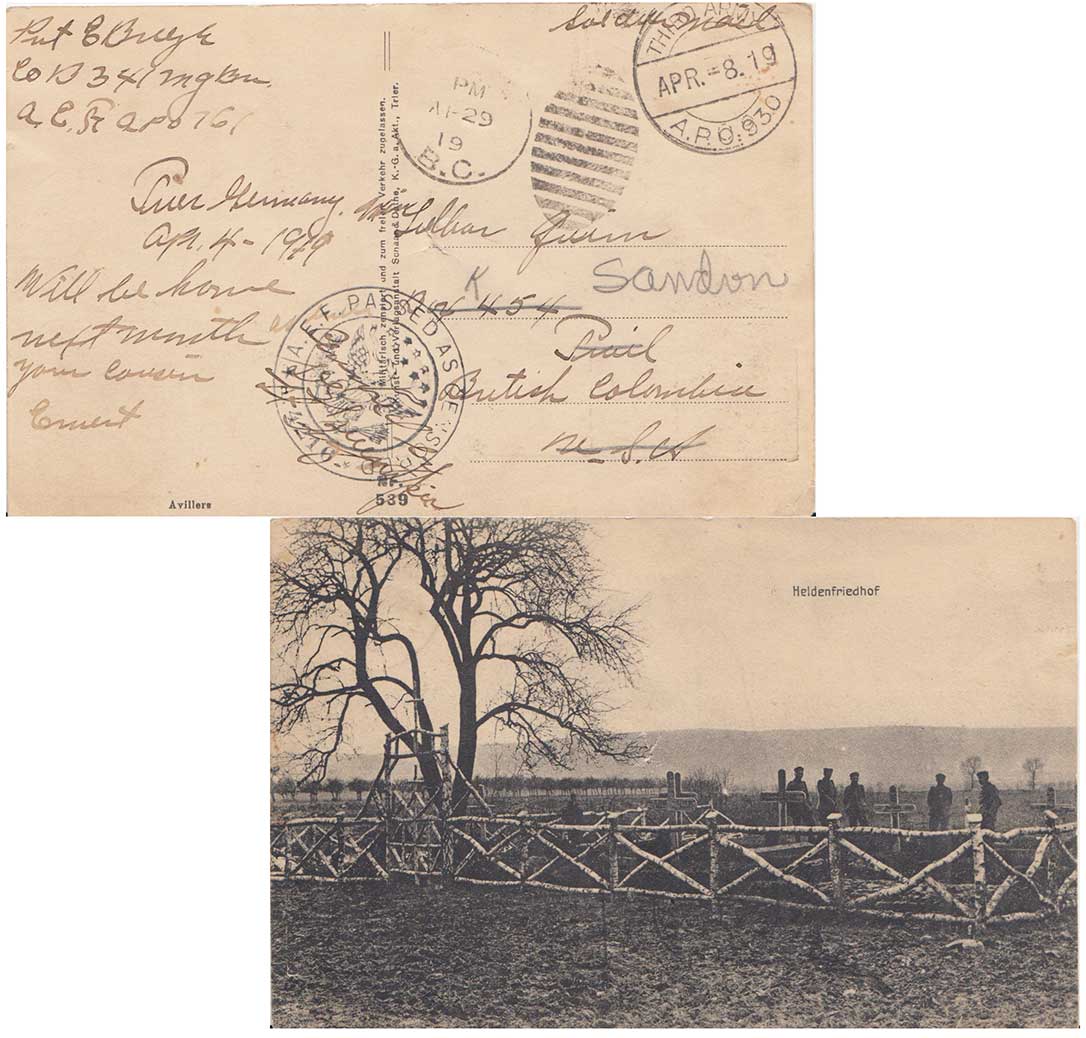 Pvt E
Co B 341 mg Bn.
A.E.F. APO 761
Soldiers mail
THIRD ARMY
APR.-8.19
A.P.O. 930
PM
29
19
B.C.
Trier Germany.
Apr. 4 - 1919
Will be home
next month
your Cousin
Ernest
Sandon
K
Box 454
British Colombia
U.S.A
A.E.F. PASSED AS CENSORED
Militärisch zensiert und zum freien Verkehr zugelassen.
Kunst- und Verlagsanstalt Schaar & Dathe, K.-G. a. Akt., Trier.
Nr.
539
Avillers
Heldenfriedhof